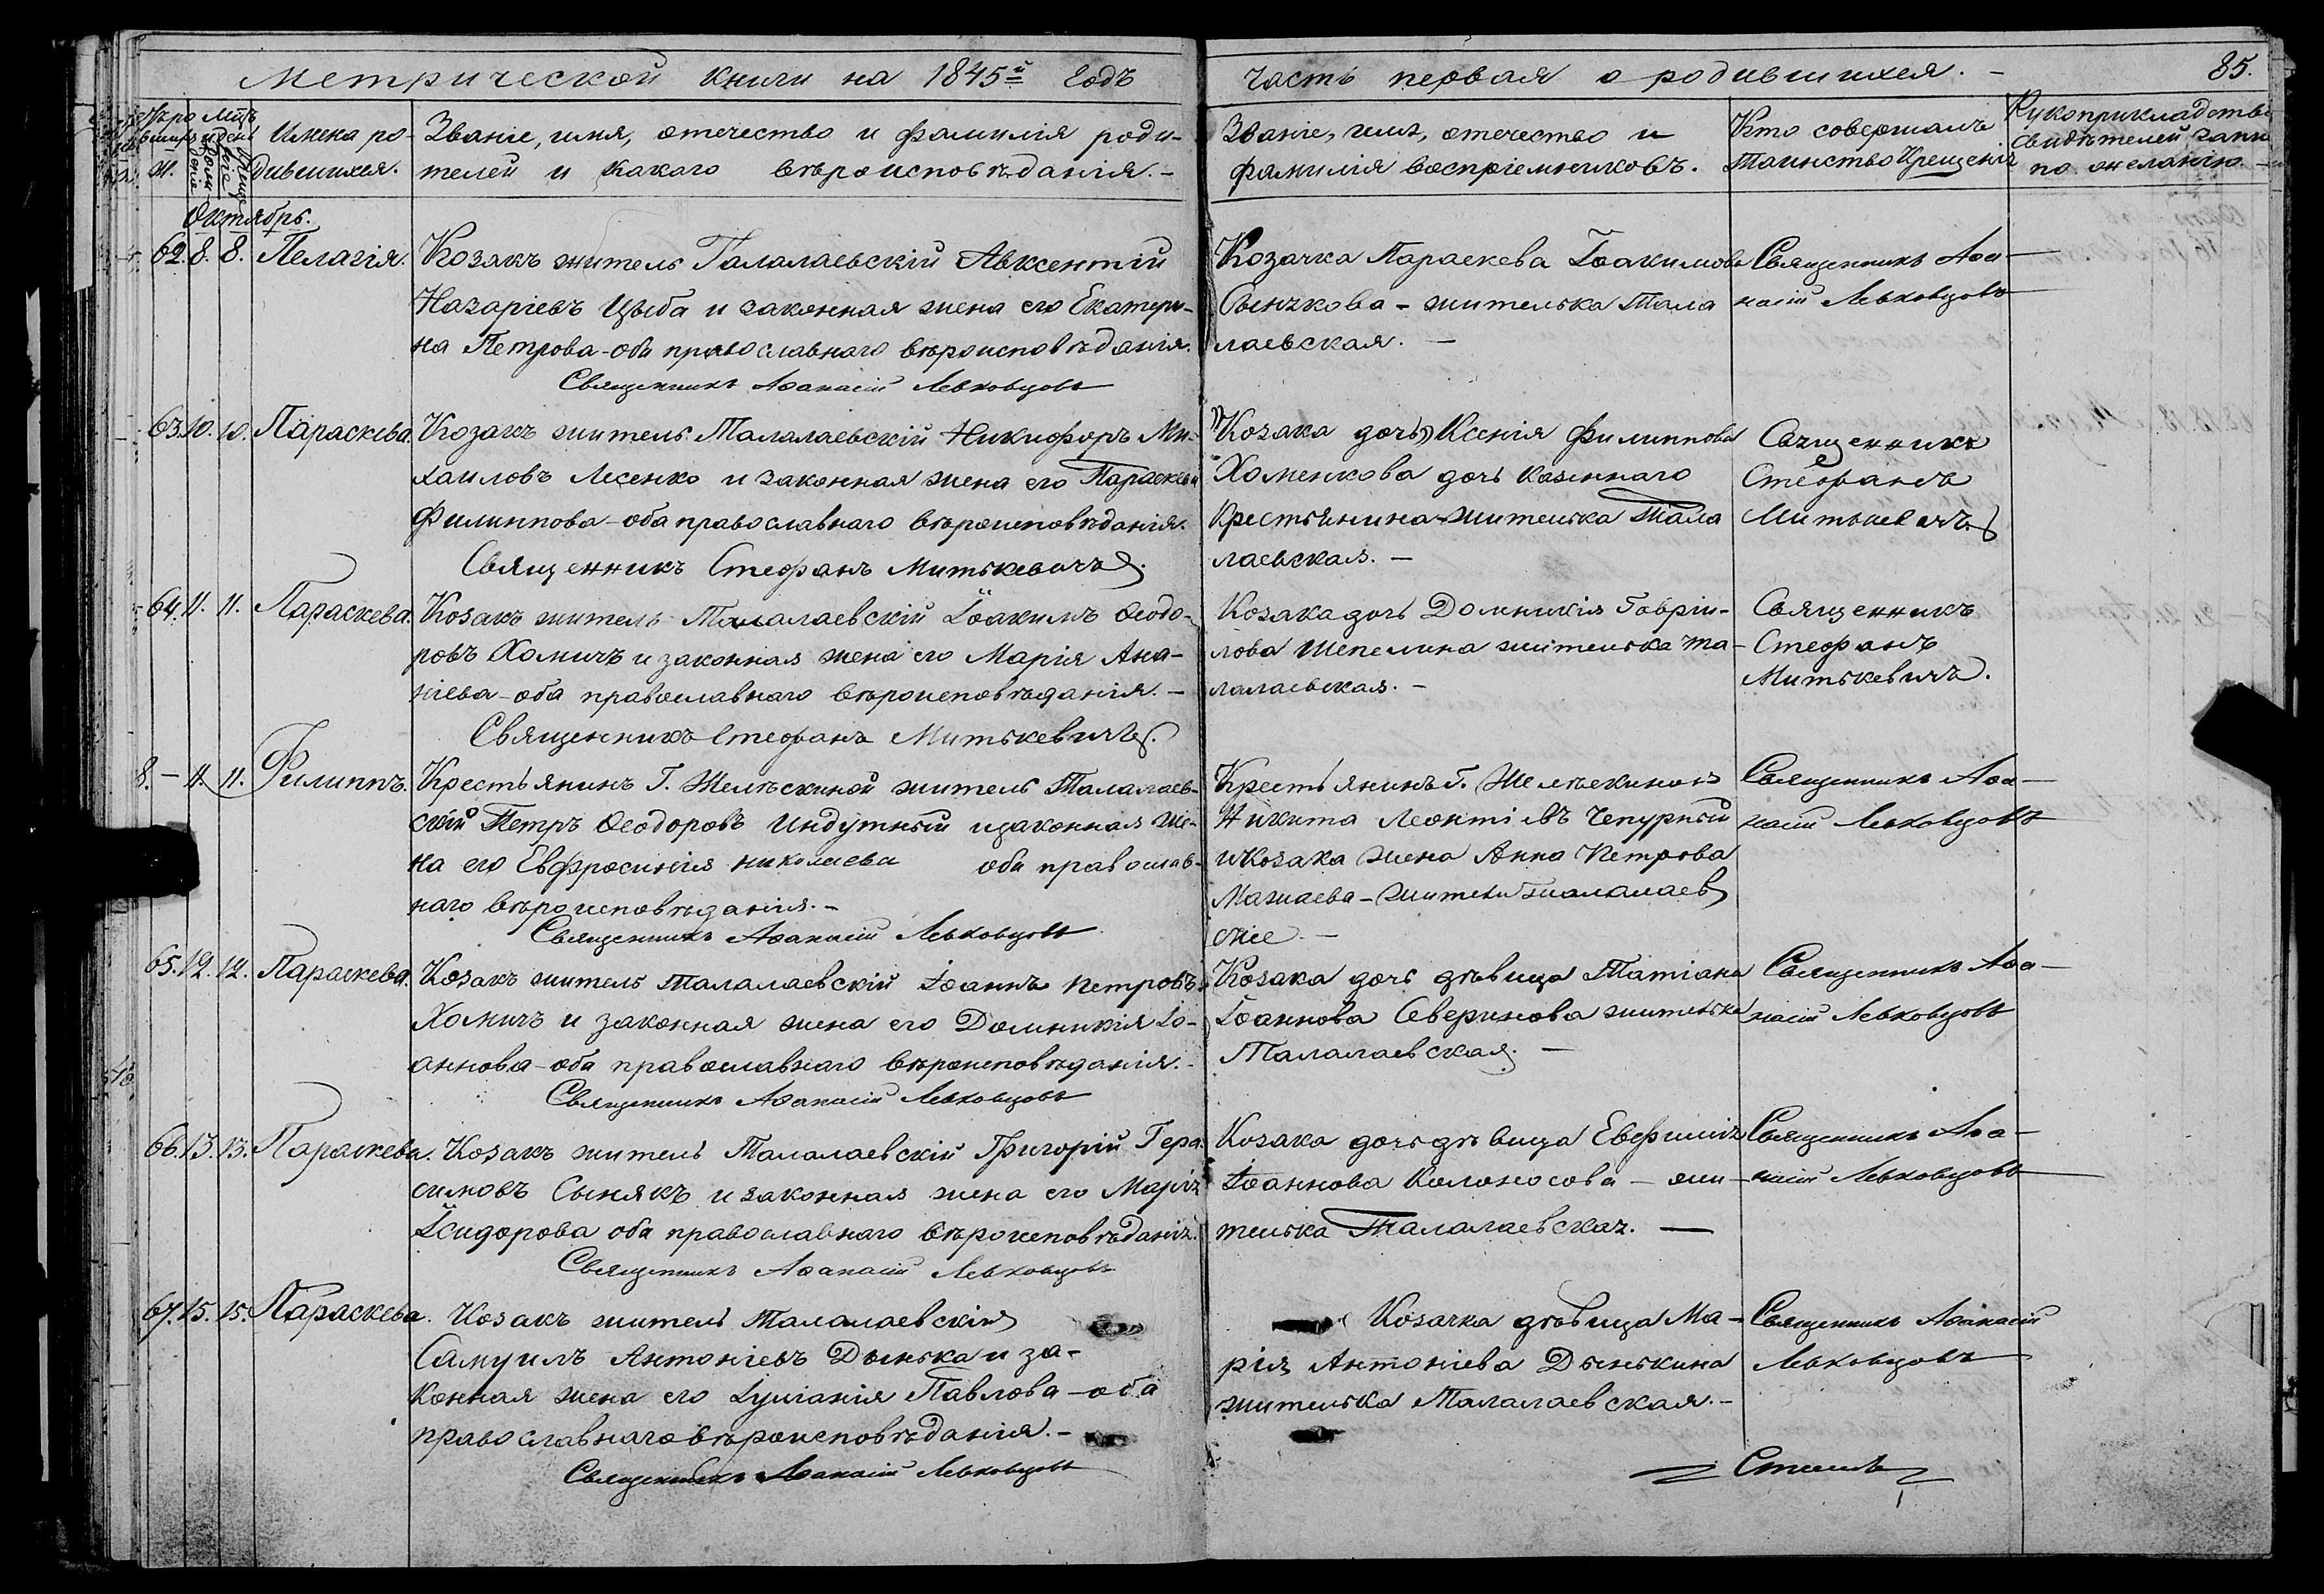 Метрической книги на 1845й Годъ часть первая о родившихся. 85.
Имена родившихся.
Званіе, имя, отечество и фамилія родителей и какаго вѣроисповѣданія.
Званіе, имя, отечество и фамилія воспріемниковъ.
Кто совершалъ Таинство Крещенія
Рукоприкладство свидѣтелей
по желанію
Октябрь.
62. 8. 8. Пелагія.
Козакъ житель Талалаевскій Авксентій
Назаріевъ Цыба и законная жена его Екатери-
на Петрова - оба православнаго вѣроисповѣданія.
Священникъ Аѳанасій Левковцовъ
Козачка Параскева Іоакимова
Сынчкова - жителька Тала
лаевская. -
Священникъ Аѳа-
насій Левковцовъ
63. 10. 10. Параскева.
Козакъ житель Талалаевскій Никифоръ Ми-
хаиловъ Лесенко и законная жена его Параскева
Филиппова - оба православнаго вѣроисповѣданія.
Священникъ Стефанъ Митькевичъ.
Козака дочь Ксенія Филиппова
Хоменкова дочь казеннаго
крестьянина - жителька Тала
лаевская. -
Священникъ
Стефанъ
Митькевичъ
64. 11. 11. Параскева.
Козакъ житель Талалаевскій Іоакимъ Ѳеодо-
ровъ Хомичъ и законная жена его Марія Ана-
ніева - оба православнаго вѣроисповѣданія. -
Священникъ Стефанъ Митькевичъ.
Козака дочь Домникія Гаврiи-
лова Шепелина жителька та-
лалаевская. -
Священникъ
Стефанъ
Митькевичъ.
8. - 11. 11. Филиппъ.
Крестьянинъ Г. Желѣскиной житель Талалаев-
скій Петръ Ѳеодоровъ Индутный и законная же-
на его Евфросинія николаева оба православ-
наго вѣроисповѣданія. -
Священникъ Аѳанасій Левковцовъ
Крестьянинъ Г. Желѣскиной
Никита Леонтіевъ Чепурный
и козака жена Анна Петрова
Мажаева - жители талалаев
скіе. -
Священникъ Аѳа-
насій Левковцовъ
65. 12. 12. Параскева.
Козакъ житель Талалаевскій Іоаннъ Петровъ
Хомичъ и законная жена его Домникія Іо-
аннова - оба православнаго вѣроисповѣданія. -
Священникъ Аѳанасій Левковцовъ
Козака дочь дѣвица Татіана
Іоаннова Северинова жителька
Талалаевская. -
Священникъ Аѳа-
насій Левковцовъ
66. 13. 13. Параскева.
Козакъ житель Талалаевскій Григорій Гера
симовъ Сынякъ и законная жена его Марія
Ісидорова оба православнаго вѣроисповѣданія.
Священникъ Аѳанасій Левковцовъ
Козака дочь дѣвица Евфимія
Іоаннова Колоносова - жи-
телька Талалаевская. -
Священникъ Аѳа-
насій Левковцовъ
67. 15. 15. Параскева.
Козакъ житель Талалаевскій
Самуилъ Антоніевъ Дынька и за-
конная жена его Іуліанія Павлова - оба
православнаго вѣроисповѣданія. -
Священникъ Аѳанасій Левковцовъ
Козачка дѣвица Ма-
рія Антоніева Дынькина
жителька Талалаевская. -
Священникъ Аѳанасій
Левковцовъ